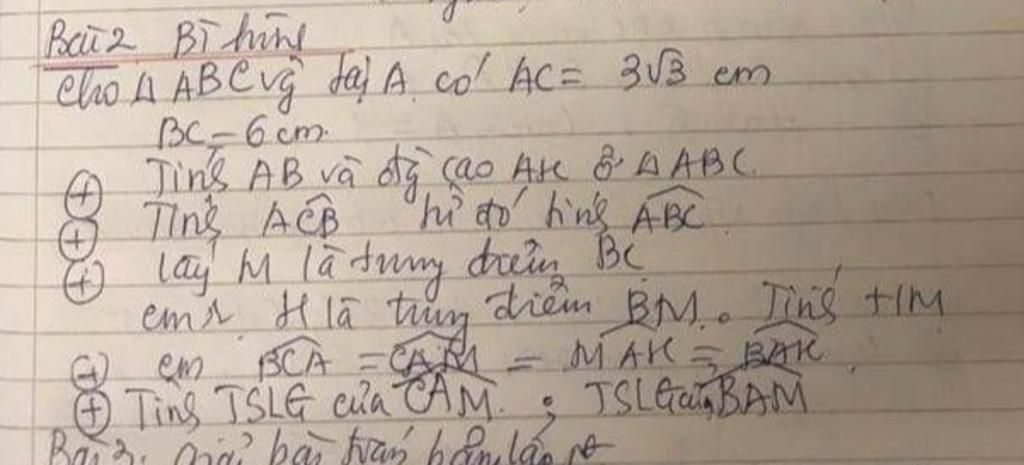 Bài 2 Bì hùng
Cho Δ ABC vg tại A có AC = 3√3 cm
BC = 6 cm.
⊕ Tính AB và đg cao AH ở Δ ABC.
⊕ Tính ACB từ đó tính ABC
⊕ lấy M là trung điểm BC
cm r H là trung điểm BM. Tính HM
⊕ cm BCA = CAM = MAH = BAH
⊕ Tính TSLG của CAM. ; TSLG của BAM
Bài 3. Giải bài toán